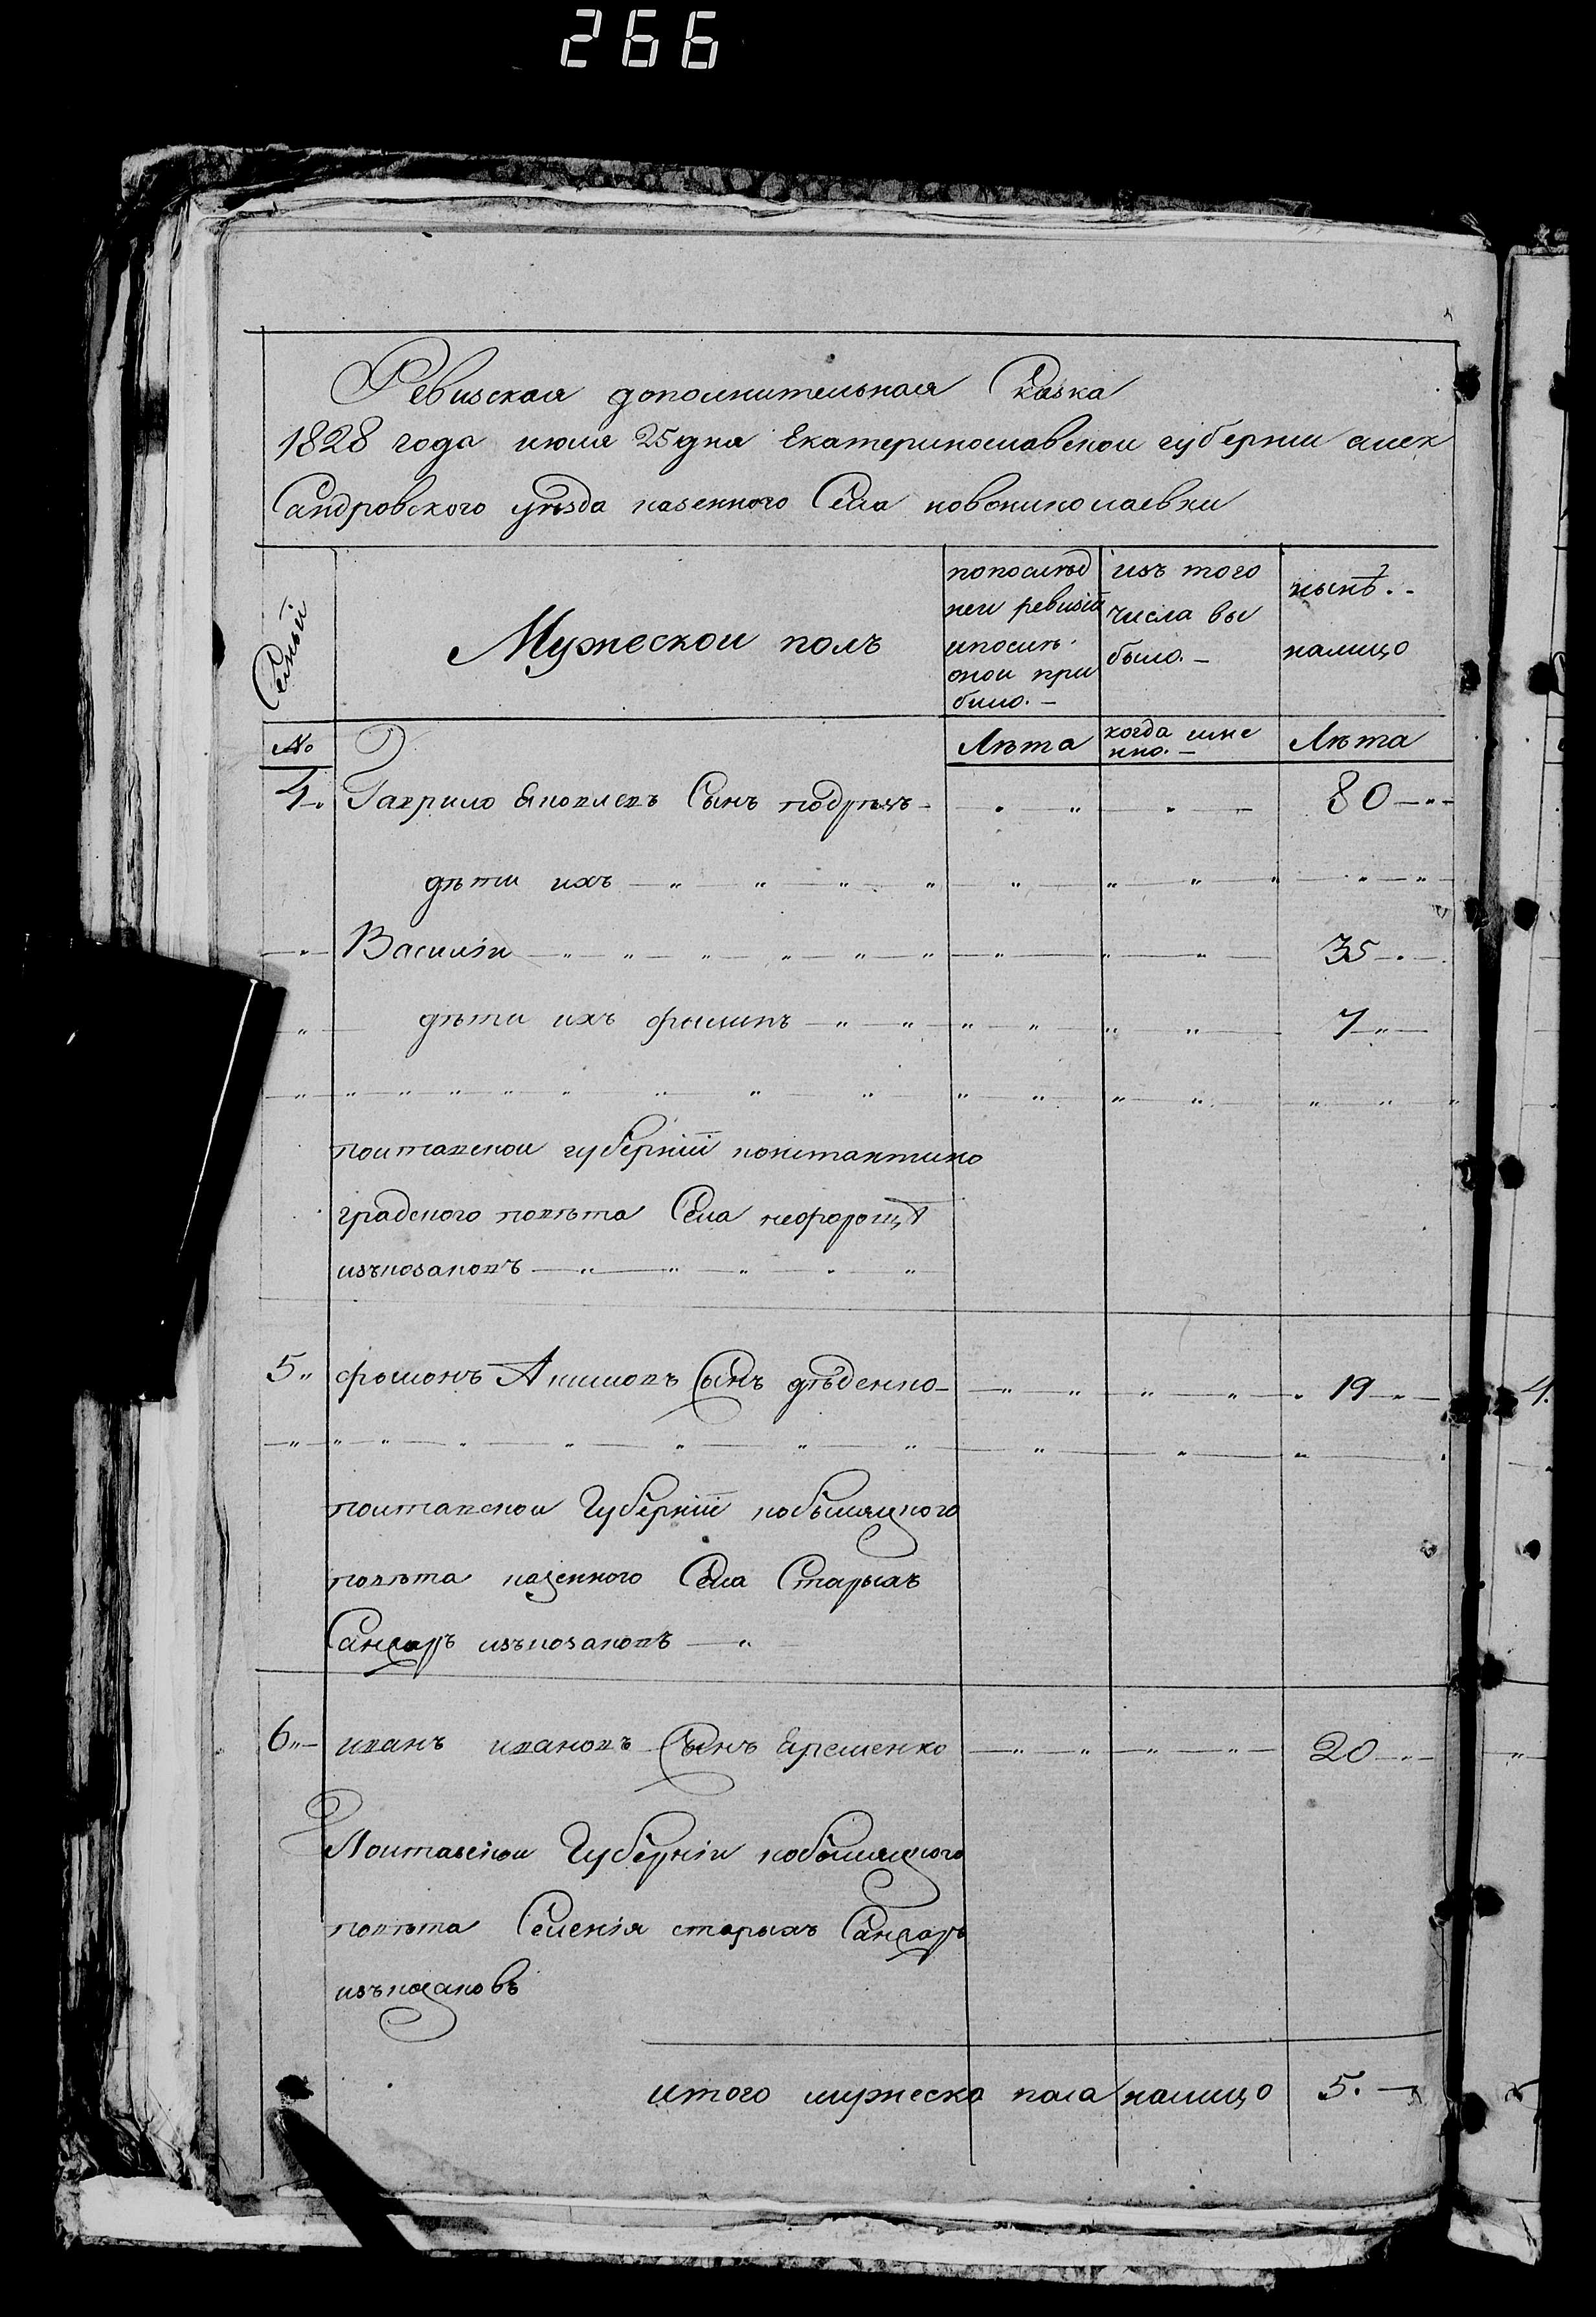 266
Ревизская дополнительная Сказка
1828 года июля 25 дня Екатеринославской губернии алек
Сандровского уѣзда казенного Села новониколаевки
Семьи
№
Мужеской полъ
попослѣд
неи ревизіи
ипослѣ
онои при
было. —
изъ того
числа вы
было. —
нынѣ. -
налицо
Лѣта
когда име
нно. —
Лѣта
4 Гаврило Яковлевъ Сынъ 80
дѣти ихъ
Василіи 35
дѣти ихъ филипъ 7
полтавскои губерніи константино
градского повѣта Села нефорощѣ
изъкозаковъ
5 Акимовъ Сынъ дѣденко 19 4.
полтавскои Губерніи кобыляцкого
повѣта казенного Села Старыхъ
Санжаръ изъкозаковъ
6 иванъ ивановъ Сынъ Яременко 20
Полтавскои Губерніи кобыляцкого
повѣта Селенія старыхъ Санжаръ
изъкозаковъ
итого мужеска пола налицо 5.